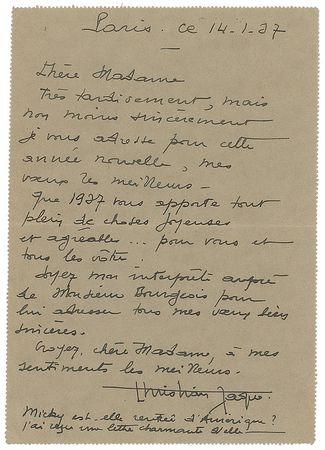 Paris. ce 14-1-37
Chère Madame
Très tardivement, mais
non moins sincèrement
je vous adresse pour cette
année nouvelle, mes
vœux les meilleurs -
Que 1937 vous apporte tout
plein de choses joyeuses
et agréables ... pour vous et
tous les vôtres.
Soyez mon interprète auprès
de Monsieur Bourgeois pour
lui adresser tous mes vœux bien
sincères.
Croyez, chère Madame, à mes
sentiments les meilleurs.
Christian
Micky est-elle rentrée d'Amérique?
J'ai reçu une lettre charmante d'elle